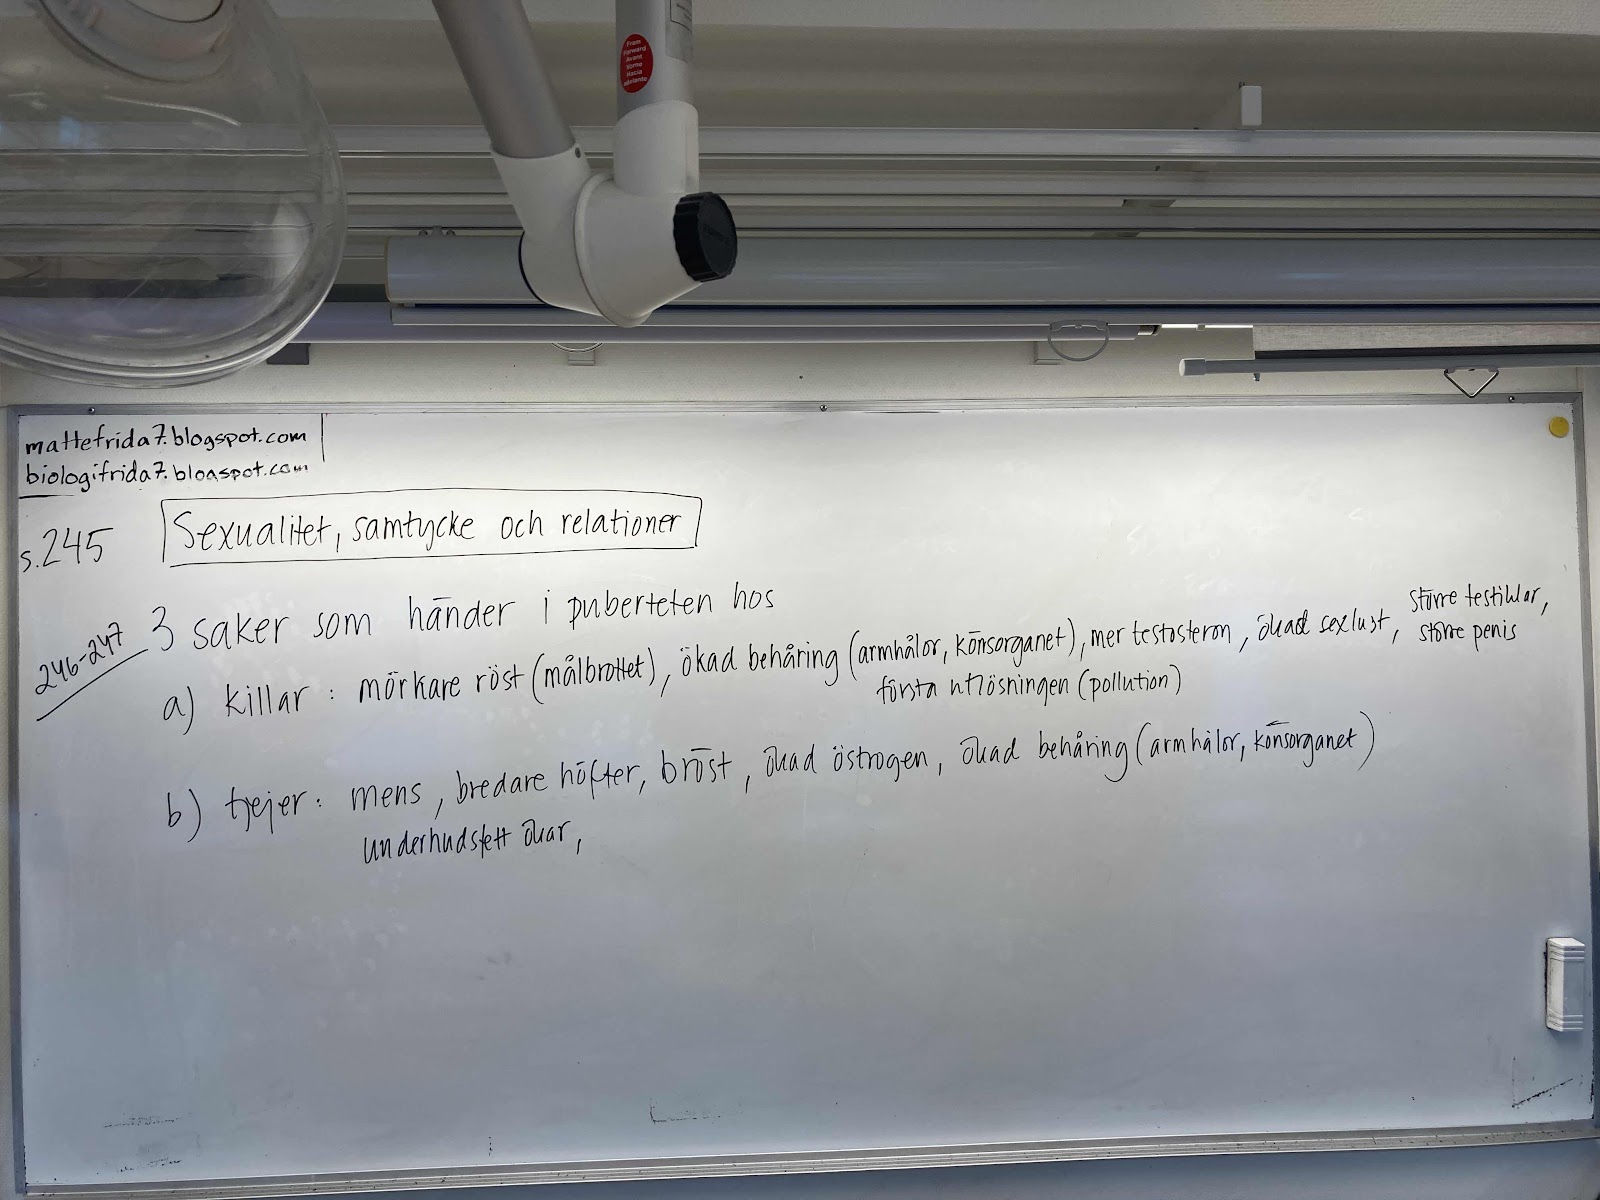 From
Forward
Avant
Vorne
Hacia
adelante
mattefrida7.blogspot.com
biologifrida7.blogspot.com
s.245 Sexualitet, samtycke och relationer
246-247 3 saker som händer i puberteten hos
a) killar : mörkare röst (målbrottet), ökad behåring (armhålor, könsorganet), mer testosteron, ökad sexlust, större testiklar,
större penis
första utlösningen (pollution)
b) tjejer : mens, bredare höfter, bröst, ökad östrogen, ökad behåring (armhålor, könsorganet)
underhudsfett ökar,